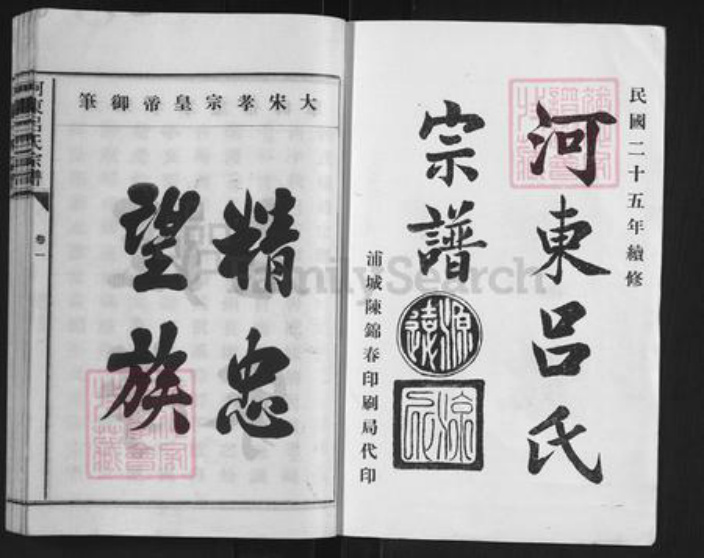 民國二十五年續修
河東呂氏
宗譜
源遠
浦城陳錦春印刷局代印
大宋孝宗皇帝御筆
精忠
望族
河東呂氏宗譜
卷一
FamilySearch